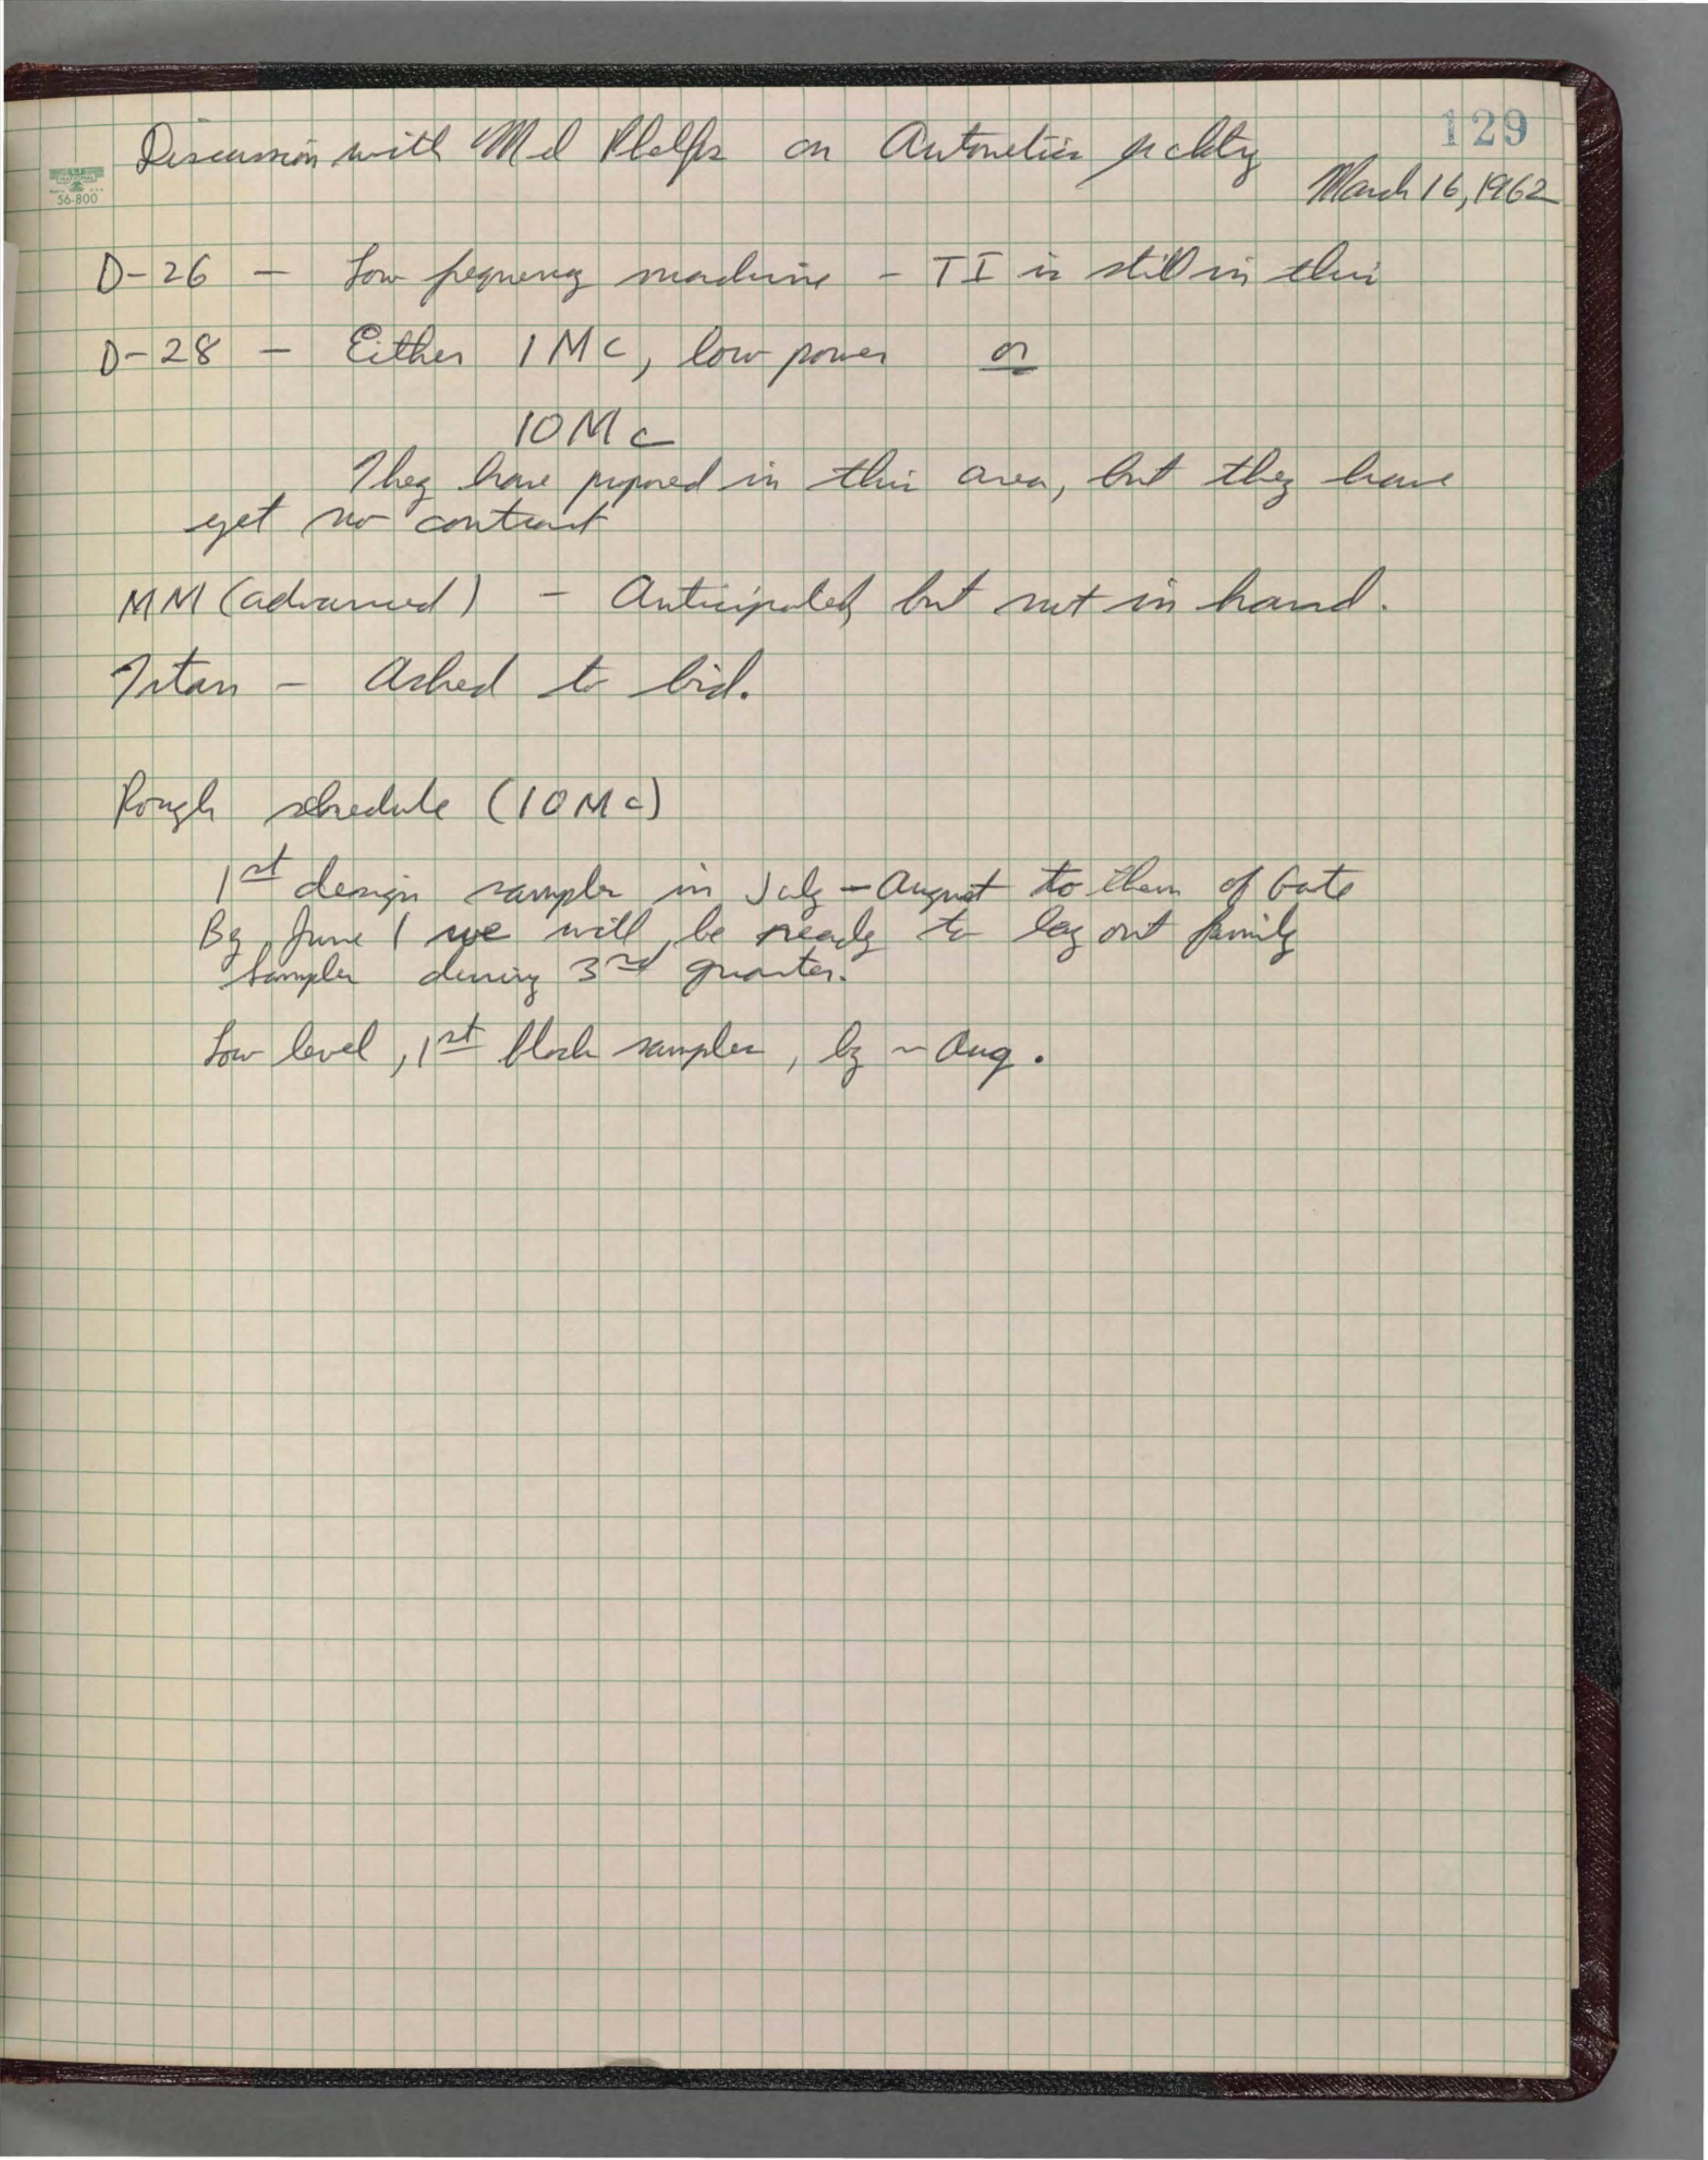 129
Discussion with Mel Phelps on Autonetics
March 16, 1962
NATIONAL
56-800
D-26 — Low frequency machine – TI is still in this
D-28 — Either 1 Mc, low power or
10 Mc
They have proposed in this area, but they have
yet no contract
MM (advanced) – Anticipated, but not in hand.
Titan – Asked to bid.
Rough schedule (10 Mc)
1st design samples in July – August to them of Gate
By June 1 we will be ready to lay out family
samples during 3rd quarter.
Low level, 1st block samples, by ~ Aug.